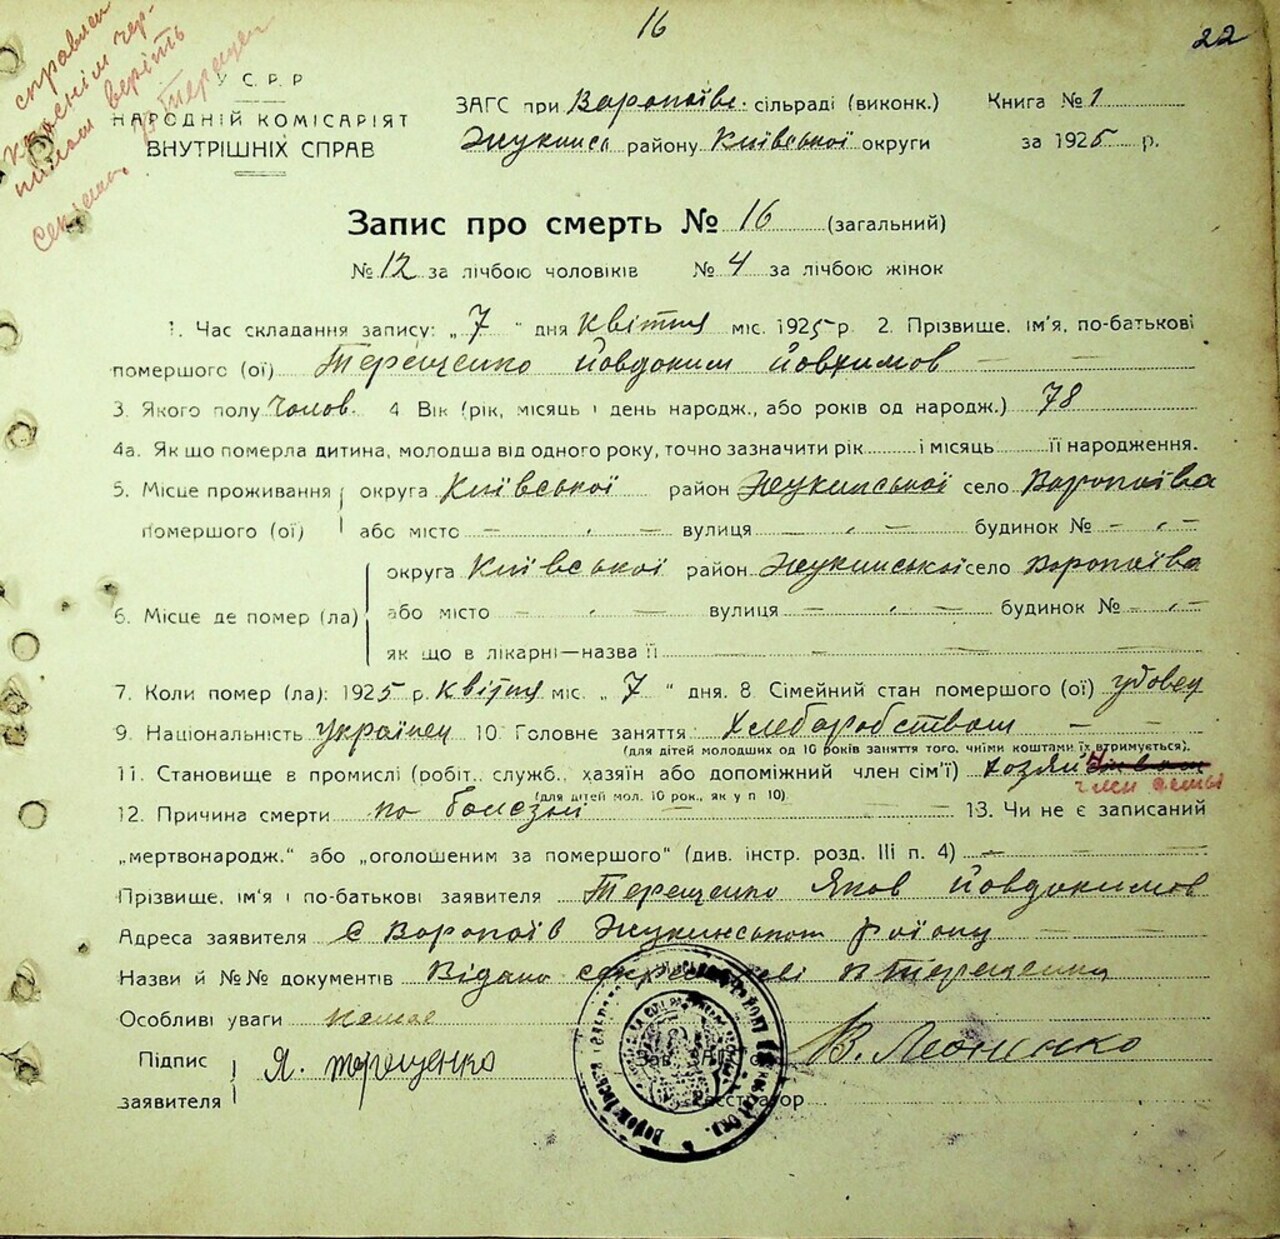 16
22
справлен
красним чер-
нилом веріть
У С. Р. Р
НАРОДНІЙ КОМІСАРІЯТ
ВНУТРІШНІХ СПРАВ
ЗАГС при Воропоївс. сільраді (виконк.) Книга № 1
Жукинсь району Київської округи за 1925 р.
Запис про смерть № 16 (загальний)
№ 12 за лічбою чоловіків № 4 за лічбою жінок
1. Час складання запису: „ 7 " дня Квітня міс. 1925 р 2. Прізвище, ім'я, по-батькові
помершого (ої) Терещенко Йовдоким Йовхимов
3. Якого полу Чолов. 4 Вік (рік, місяць і день народж., або років од народж.) 78
4а. Як що померла дитина, молодша від одного року, точно зазначити рік і місяць її народження.
5. Місце проживання округа Київської район Жукинської село Воропоїва
помершого (ої) або місто вулиця будинок №
округа Київської район Жукинської село Воропоїва
6. Місце де помер (ла) або місто вулиця будинок №
як що в лікарні—назва її
7. Коли помер (ла): 1925 р. Квітня міс. „ 7 " дня. 8. Сімейний стан помершого (ої) удовец
9. Національність Українец 10. Головне заняття: Хлеборобством
(для дітей молодших од 10 років заняття того, чиїми коштами їх втримується).
11. Становище в промислі (робіт., служб., хазяїн або допоміжний член сім'ї) хозяй
член семьї
(для дітей мол. 10 рок., як у п 10)
12. Причина смерти по болєзни 13. Чи не є записаний
„мертвонародж." або „оголошеним за помершого" (див. інстр. розд. III п. 4)
Прізвище, ім'я і по-батькові заявителя Терещенко Яков Йовдокимов
Адреса заявителя С Воропоїв Жукинського роіону
Назви й №№ документів Відано П Терещенка
Особливі уваги немає
Підпис
заявителя Я. Терещенко В. Леоненко
Реєстратор